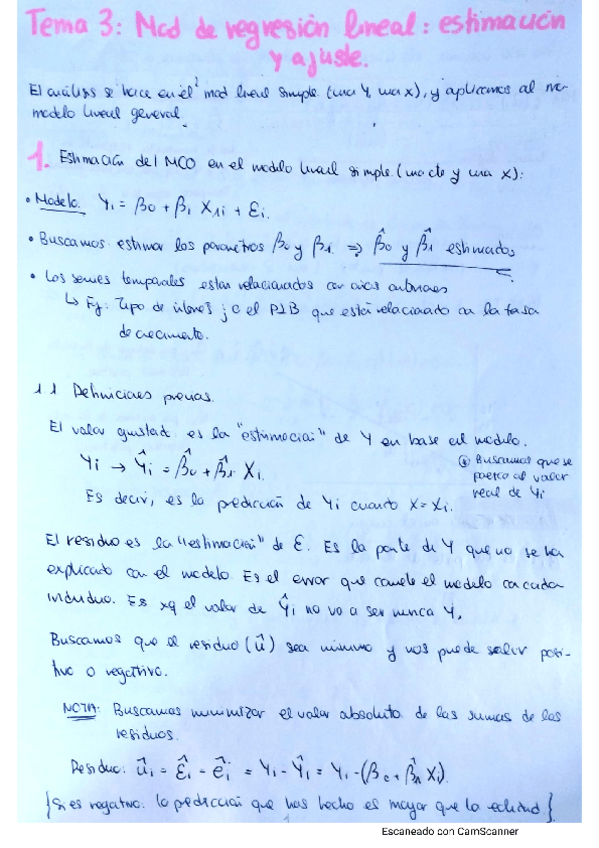 Tema 3: Mod de regresión lineal: estimación
y ajuste.
El análisis se hace en el mod lineal simple (una Y, una x), y aplicamos al
modelo lineal general.
1. Estimación del MCO en el modelo lineal simple (una cte y una x):
• Modelo. Yi = β0 + β1 X1i + Ei.
• Buscamos estimar los parametros β0 y β1 ⇒ β̂0 y β̂1 estimados
• Las series temporales estan relacionadas con años anteriores
↳ Ej: Tipo de interes ; o el PIB que está relacionado con la tasa
de crecimiento.
1.1 Definiciones previas.
El valor ajustado es la "estimacion" de Y en base al modelo.
Yi → Ŷi = β̂0 + β̂1 Xi.
Buscamos que se
parezca al valor
real de Yi
Es decir, es la predicción de Yi cuando X = Xi.
El residuo es la "estimacion" de E. Es la parte de Y que no se ha
explicado con el modelo. Es el error que comete el modelo con cada
individuo. Es xq el valor de Ŷi no va a ser nunca Y.
Buscamos que el residuo (û) sea minimo y nos puede salir posi-
tivo o negativo.
NOTA: Buscamos minimizar el valor absoluto de las sumas de los
residuos.
Residuo: ûi = Ê i = êi = Yi - Ŷi = Yi - (β̂0 + β̂1 Xi).
{Si es negativo: la prediccion que has hecho es mayor que la realidad}
Escaneado con CamScanner